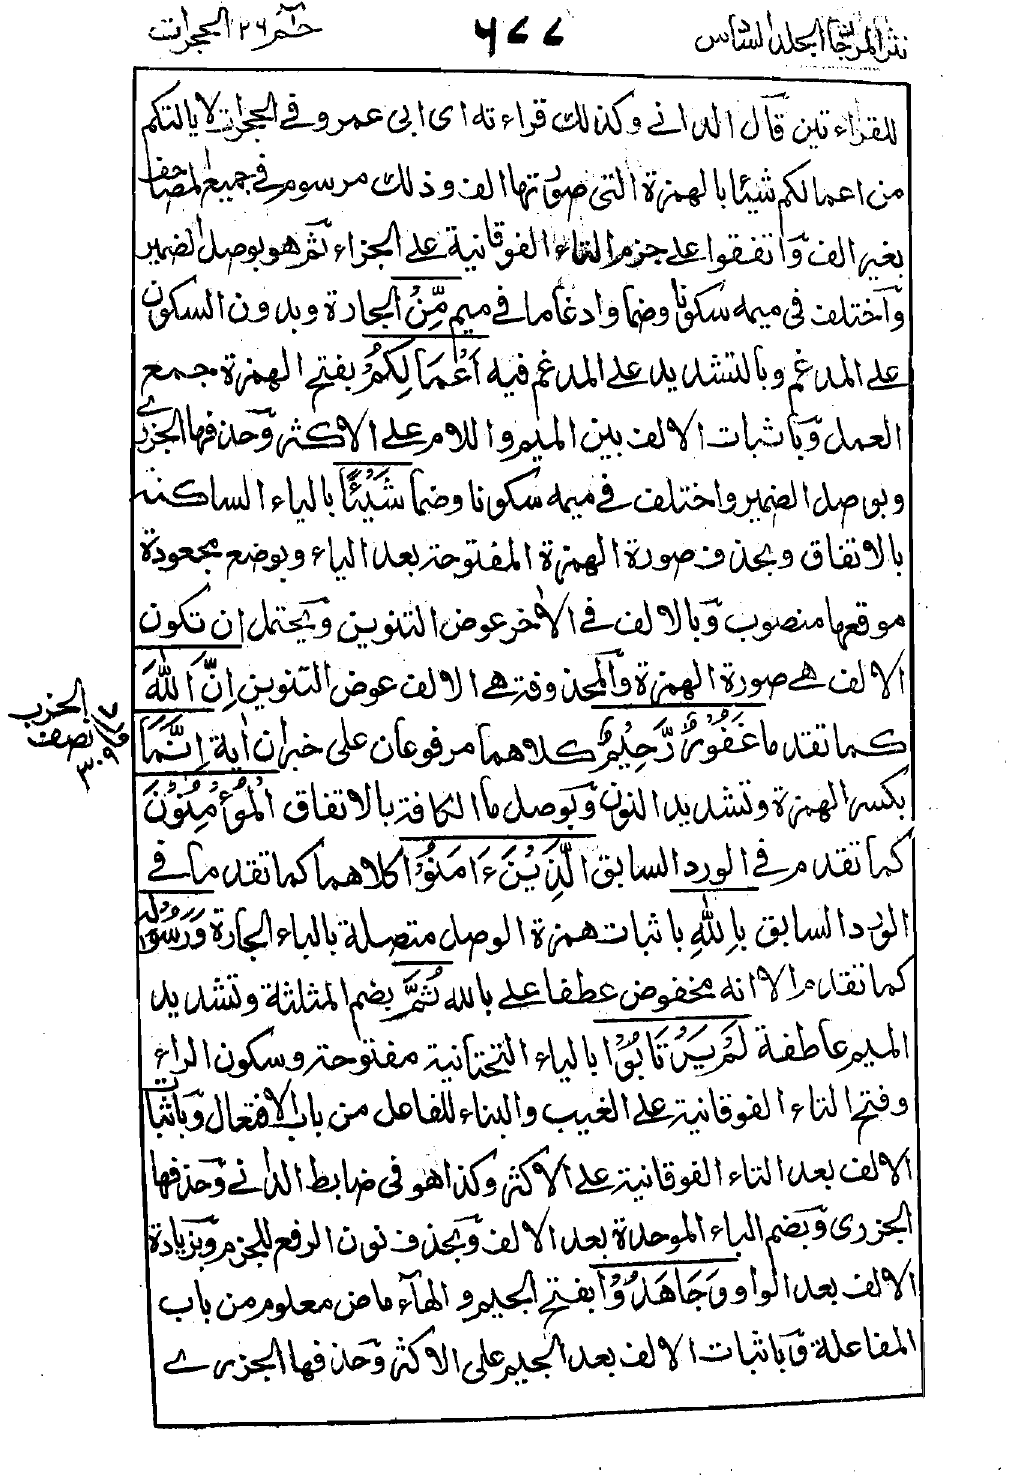 نثر المرجان الجلد السادس
٦٧٧
حٰم ٢٦ الحجرات
للقراءتين قال الدانى وكذلك قراءته اى ابى عمرو فى الحجرات لا يالتكم
من اعمالكم شيئا بالهمزة التى صورتها الف وذلك مرسوم فى جميع المصاحف
بغير الف وَاتفقوا على جزم التاء الفوقانية على الجزاء ثم هو بوصل الضمير
وَاختلف فى ميمه سكونا وضما وادغاما فى ميم مِّنْ الجارة وبدون السكون
على المدغم وبالتشديد على المدغم فيه اَعْمَالِكُمْ بفتح الهمزة جمع
العمل وَباثبات الالف بين الميم واللام على الاكثر وَحذفها الجزرى
وبوصل الضمير واختلف فى ميمه سكونا وضما شَيْئًا بالياء الساكنة
بالاتفاق وبحذف صورة الهمزة المفتوحة بعد الياء وبوضع مجعودة
موقعها منصوب وَبالالف فى الاٰخر عوض التنوين وَيحتمل ان تكون
الالف هى صورة الهمزة وَالمحذوفة هى الالف عوض التنوين اِنَّ اللّٰهَ
كما تقدما غَفُوْرٌ رَّحِيْمٌ كلاهما مرفوعان على خبر ان اٰية اِنَّمَا
بكسر الهمزة وتشديد النون وَبوصل ما الكافة بالاتفاق الْمُؤْمِنُوْنَ
كما تقدم فى الورد السابق الَّذِيْنَ ءَامَنُوْا كلاهما كما تقدما فى
الورد السابق بِاللّٰهِ باثبات همزة الوصل متصلة بالباء الجارة وَرَسُوْلِهٖ
كما تقدم الا انه مخفوض عطفا على بالله ثُمَّ بضم المثلثة وتشديد
الميم عاطفة لَمْ يَرْتَابُوْا بالياء التحتانية مفتوحة وسكون الراء
وفتح التاء الفوقانية على الغيب والبناء للفاعل من باب الافتعال وَباثبات
الالف بعد التاء الفوقانية على الاكثر وكذا هو فى ضابط الدانى وَحذفها
الجزرى وَبضم الباء الموحدة بعد الالف وَبحذف نون الرفع للجزم وَبزيادة
الالف بعد الواو وَجَاهَدُوْا بفتح الجيم والهاء ماض معلوم من باب
المفاعلة وَباثبات الالف بعد الجيم على الاكثر وَحذفها الجزرى
الحزب
نصف